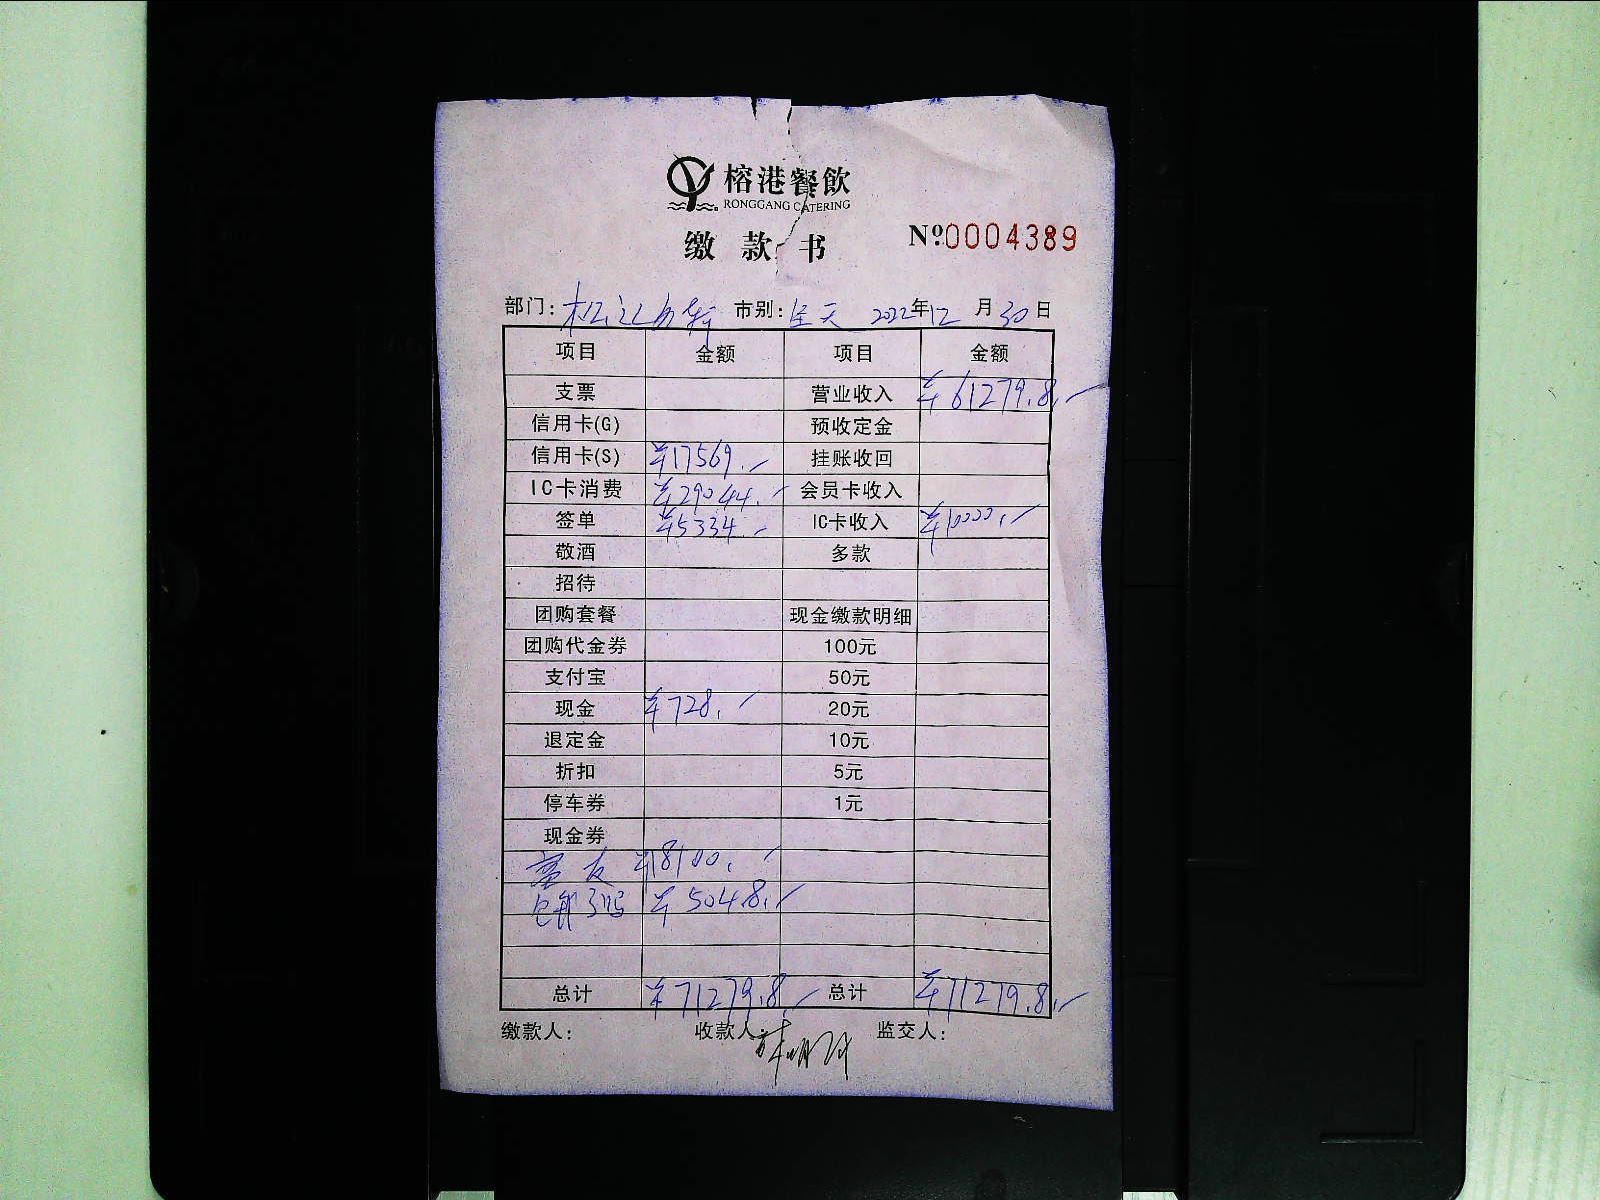 榕港餐飲
RONGGANG CATERING
缴款书
Nº0004389
部门: 市别:全天 2022年12月30日
项目 金额 项目 金额
支票 营业收入 ¥61279.8
信用卡(G) 预收定金
信用卡(S) ¥17569. 挂账收回
IC卡消费 ¥29044. 会员卡收入
签单 ¥5334. IC卡收入 ¥10000.
敬酒 多款
招待
团购套餐 现金缴款明细
团购代金券 100元
支付宝 50元
现金 ¥728. 20元
退定金 10元
折扣 5元
停车券 1元
现金券
¥18100.
¥504.8
总计 ¥71279.8 总计 ¥71279.8
缴款人: 收款人: 监交人: